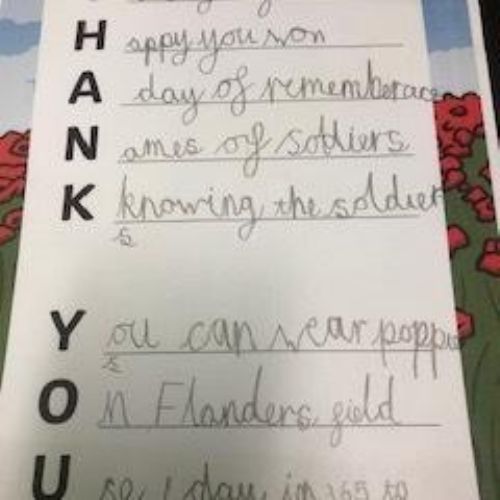 H appy you won
A day of rememberace
N ames of soldiers
K knowing the soldier
s
Y ou can wear poppy
s
O n Flanders field
U se 1 day in 365 to